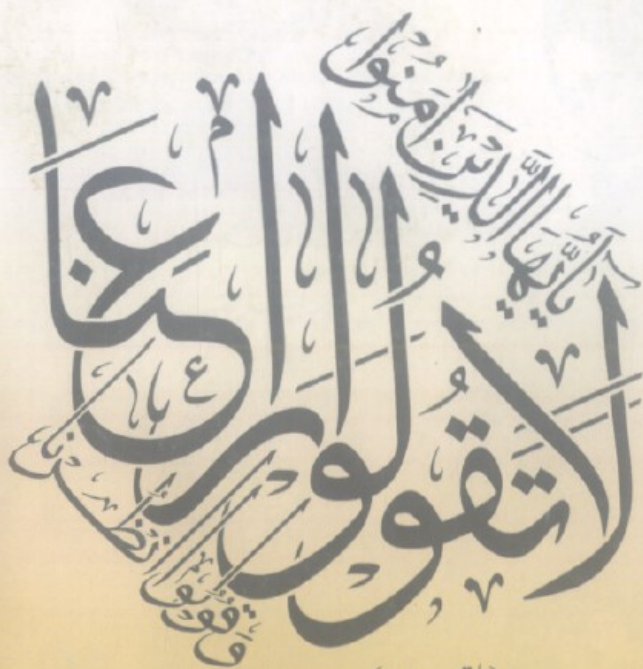 يَا أَيُّهَا الَّذِينَ آمَنُوا
لَا تَقُولُوا رَاعِنَا
وَقُولُوا انْظُرْنَا